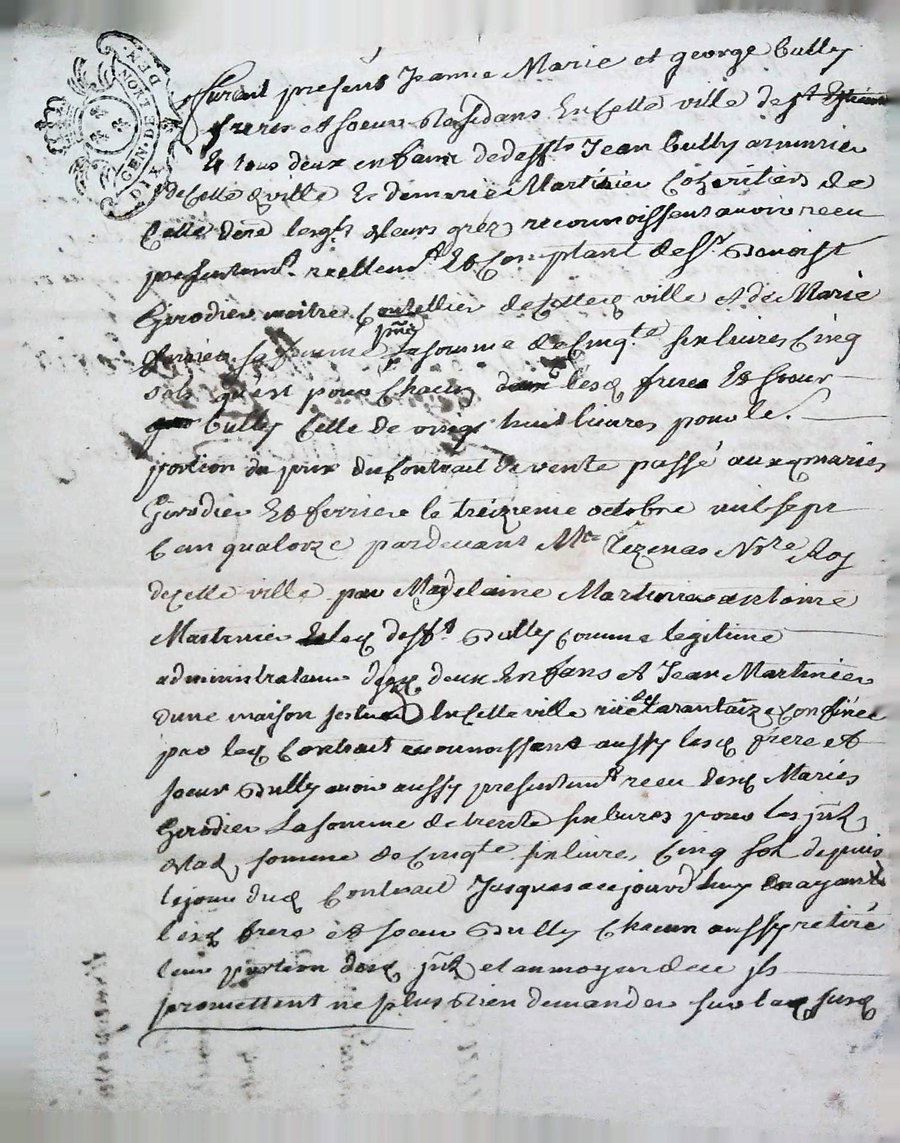 GEN. DE LION
DIX DEN.
Furent presens Jeanne Marie et george Bully
frere et soeur Residans En Cette ville de st Estienne
Et tous deux enfans de deffts Jean Bully armurier
de Cette ville Et de marie Martinier Coheritiers de
Cette dere lesqls de leurs grez reconnoissent avoir receu
presentemt reellemt Et Comptant de sr Benoist
Girodier maitre Coutellier de Cette ville et de Marie
la somme de Cinqte six livres Cinq
sols qu'est pour Chacun lesd frere Et soeur
Bully Celle de vingt huit livres pour le
portion du prix du Contrait de vente passé auxd mariés
Girodier Et ferriere le treizieme octobre mil sept
Cent quatorze pardevant Mtre Tezenas Nre Roy
de Cette ville par Magdelaine Martinier antoine
Martinier Et led defft Bully comme legitime
administrateur desd deux Enfans et Jean Martinier
dune maison scituée En Cette ville rue de tarantaize Confinée
par led Contrait reconnoissent aussy lesd frere et
soeur Bully avoir aussy presentemt receu desd Mariés
Girodier La somme de trente six livres pour les
de lad somme de Cinqte six livres Cinq sols depuis
le jour dud Contrait Jusques a ce jourd'huy En ayant
lesd frere et soeur Bully Chacun aussy retiré
leur portion desd et au moyen de ce jls
promettent ne plus rien demander sur lad